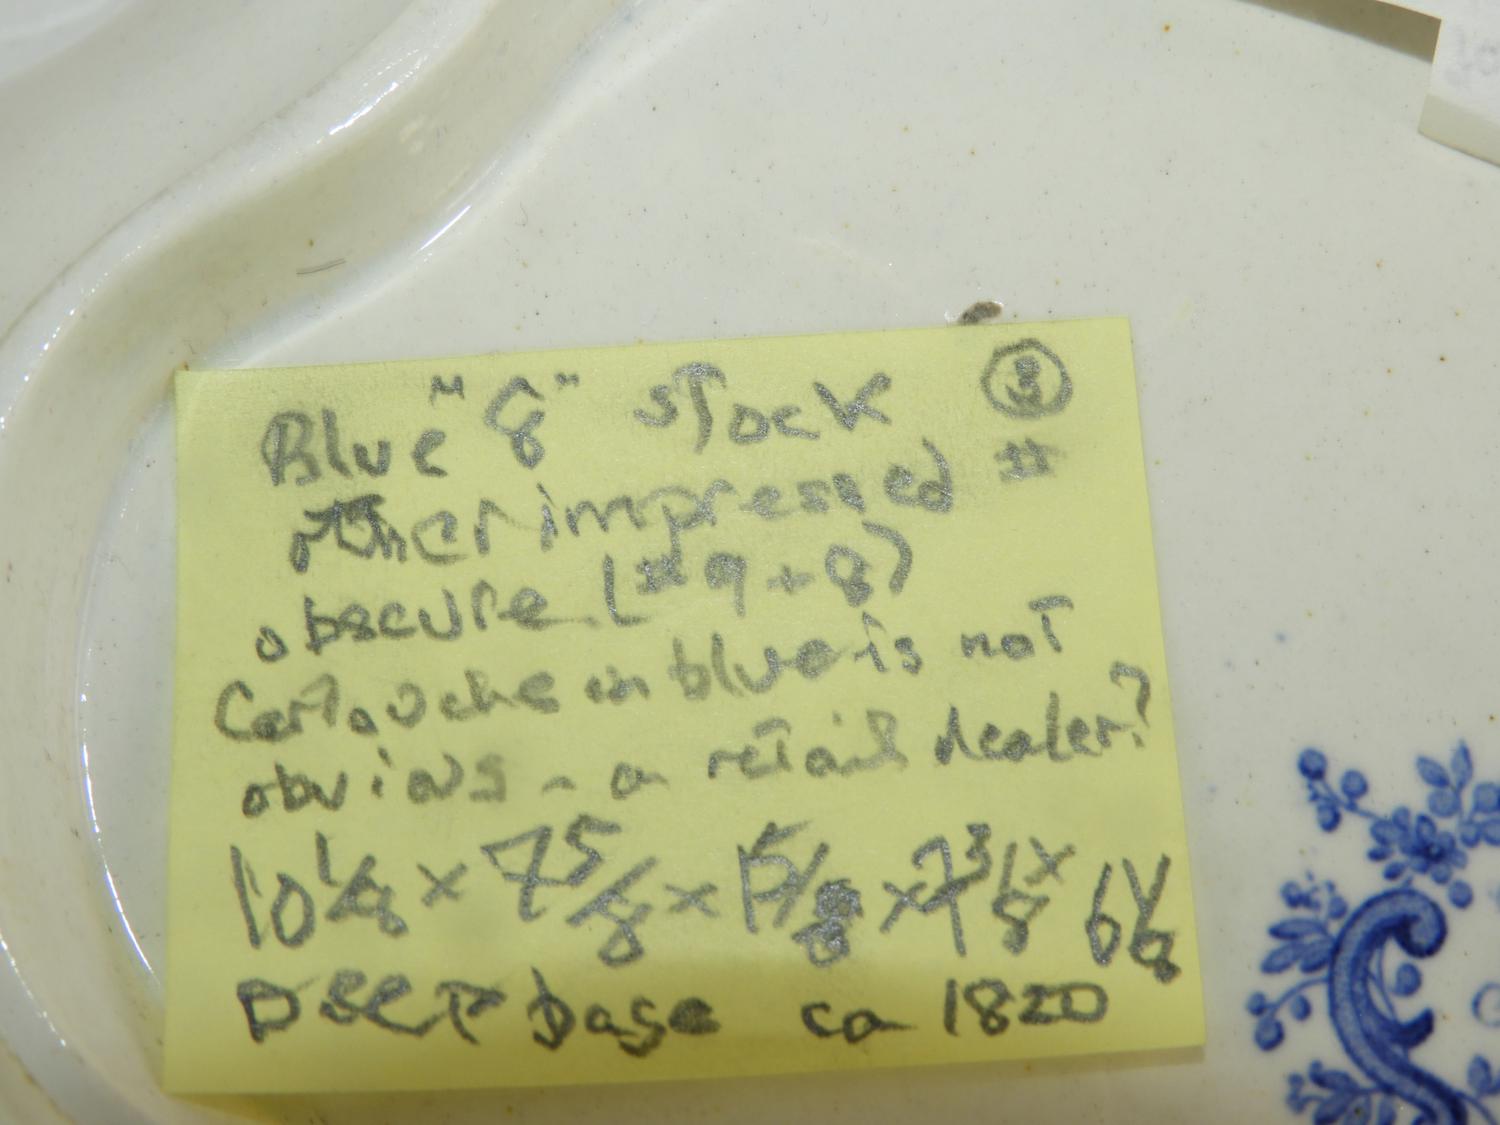 Blue "8" stock ③
other impressed #
obscure (#9+8)
Cartouche in blue is not
obvious - a retail dealer?
10 1/8 x 7 5/8 x 1 5/8 x 7 3/8 x 6 1/8
Deep base ca 1820